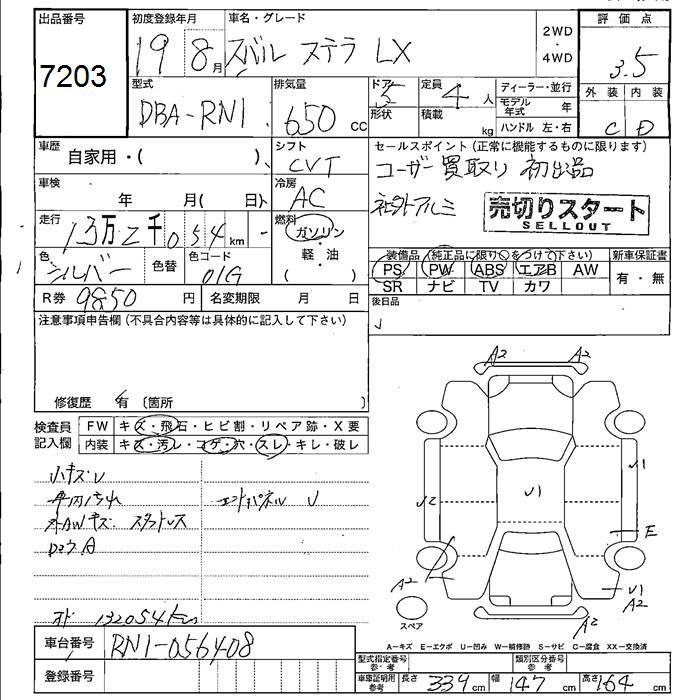 出品番号
7203
初度登録年月
19 8月
車名・グレード
スバル ステラ LX
2WD
・
4WD
評価点
3.5
外装 内装
C D
型式
DBA-RN1
排気量
650 cc
ドア 5
形状
定員 4 人
積載 kg
ディーラー・並行
モデル年式 年
ハンドル 左・右
車歴
自家用・( )
シフト
CVT
セールスポイント(正常に機能するものに限ります)
ユーザー買取り 初出品
社外アルミ
売切りスタート
SELLOUT
車検
年 月( 日)
冷房
AC
走行
13万2千054km
燃料
ガソリン
・
軽・油
色
シルバー
色替
色コード
01G
装備品(純正品に限り○をつけて下さい)
PS PW ABS エアB AW
SR ナビ TV カワ
新車保証書
有・無
R券 9850 円
名変期限 月 日
後日品
注意事項申告欄(不具合内容等は具体的に記入して下さい)
修復歴 有 〔箇所 〕
検査員記入欄
FW キズ・飛石・ヒビ割・リペア跡・X要
内装 キズ・汚レ・コゲ・穴・スレ・キレ・破レ
小キズU
エンドパネル U
A2 A2
U2 U1 U1
E
A2
U1
A2
A2
スペア
オド 132054km
車台番号 RN1-056408
登録番号
A-キズ E-エクボ U-凹み W-補修跡 S-サビ C-腐食 XX-交換済
型式指定番号 参考
類別区分番号 参考
車庫証明用 参考
長さ 339 cm 幅 147 cm 高さ 164 cm